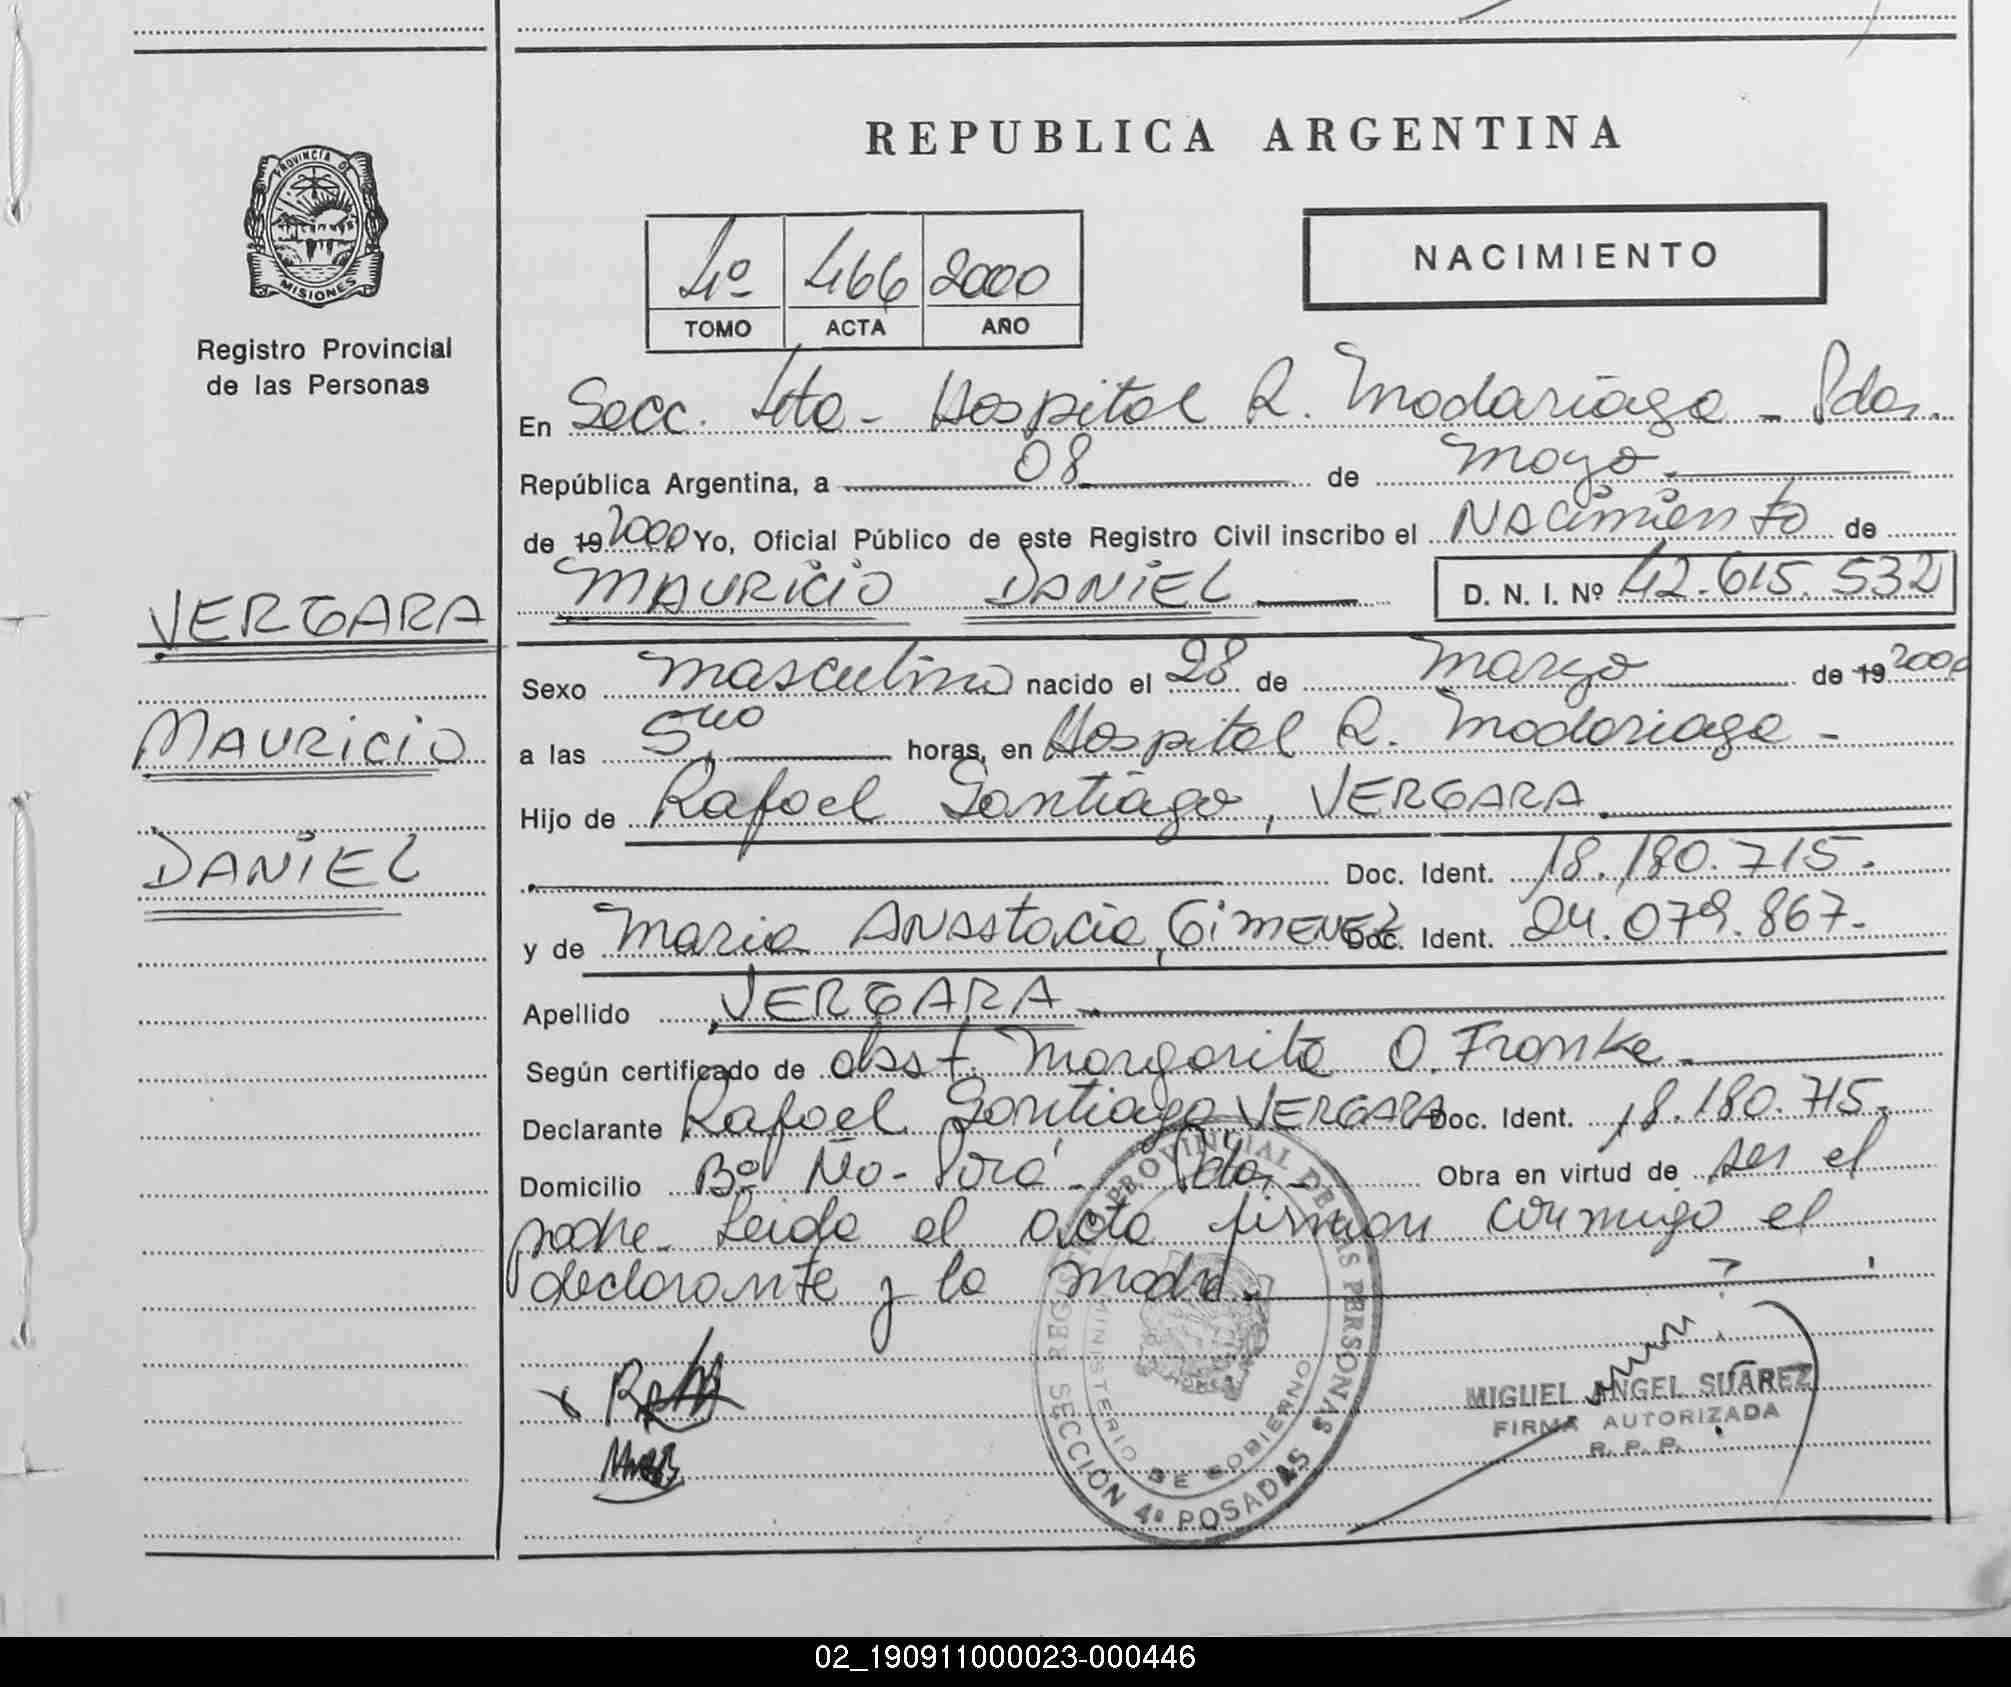 REPUBLICA ARGENTINA
PROVINCIA DE
MISIONES
Registro Provincial
de las Personas
4º 466 2000
TOMO ACTA AÑO
NACIMIENTO
En Secc. 4ta - Hospital R. Madariaga - Pdas.
República Argentina, a 08 de Mayo.
de 19 2000 Yo, Oficial Público de este Registro Civil inscribo el Nacimiento de
MAURICIO DANIEL D. N. I. Nº 42.615.532
VERGARA
MAURICIO
DANIEL
Sexo Masculino nacido el 28 de Marzo de 19 2000
a las 5,00 horas, en Hospital R. Madariaga -
Hijo de Rafael Santiago, VERGARA
Doc. Ident. 18.180.715.-
y de Maria Anastacia, GIMENEZ Doc. Ident. 24.079.867.-
Apellido VERGARA
Según certificado de obst. Margarita O. Franke
Declarante Rafael Santiago VERGARA Doc. Ident. 18.180.715.-
Domicilio Bº Ño-Porá - Pdas.- Obra en virtud de ser el
padre. Leida el acta firman conmigo el
declarante y la madre.
REGISTRO PROVINCIAL DE LAS PERSONAS
MINISTERIO DE GOBIERNO
SECCIÓN 4º POSADAS
MIGUEL ANGEL SUAREZ
FIRMA AUTORIZADA
R. P. P.
02_190911000023-000446